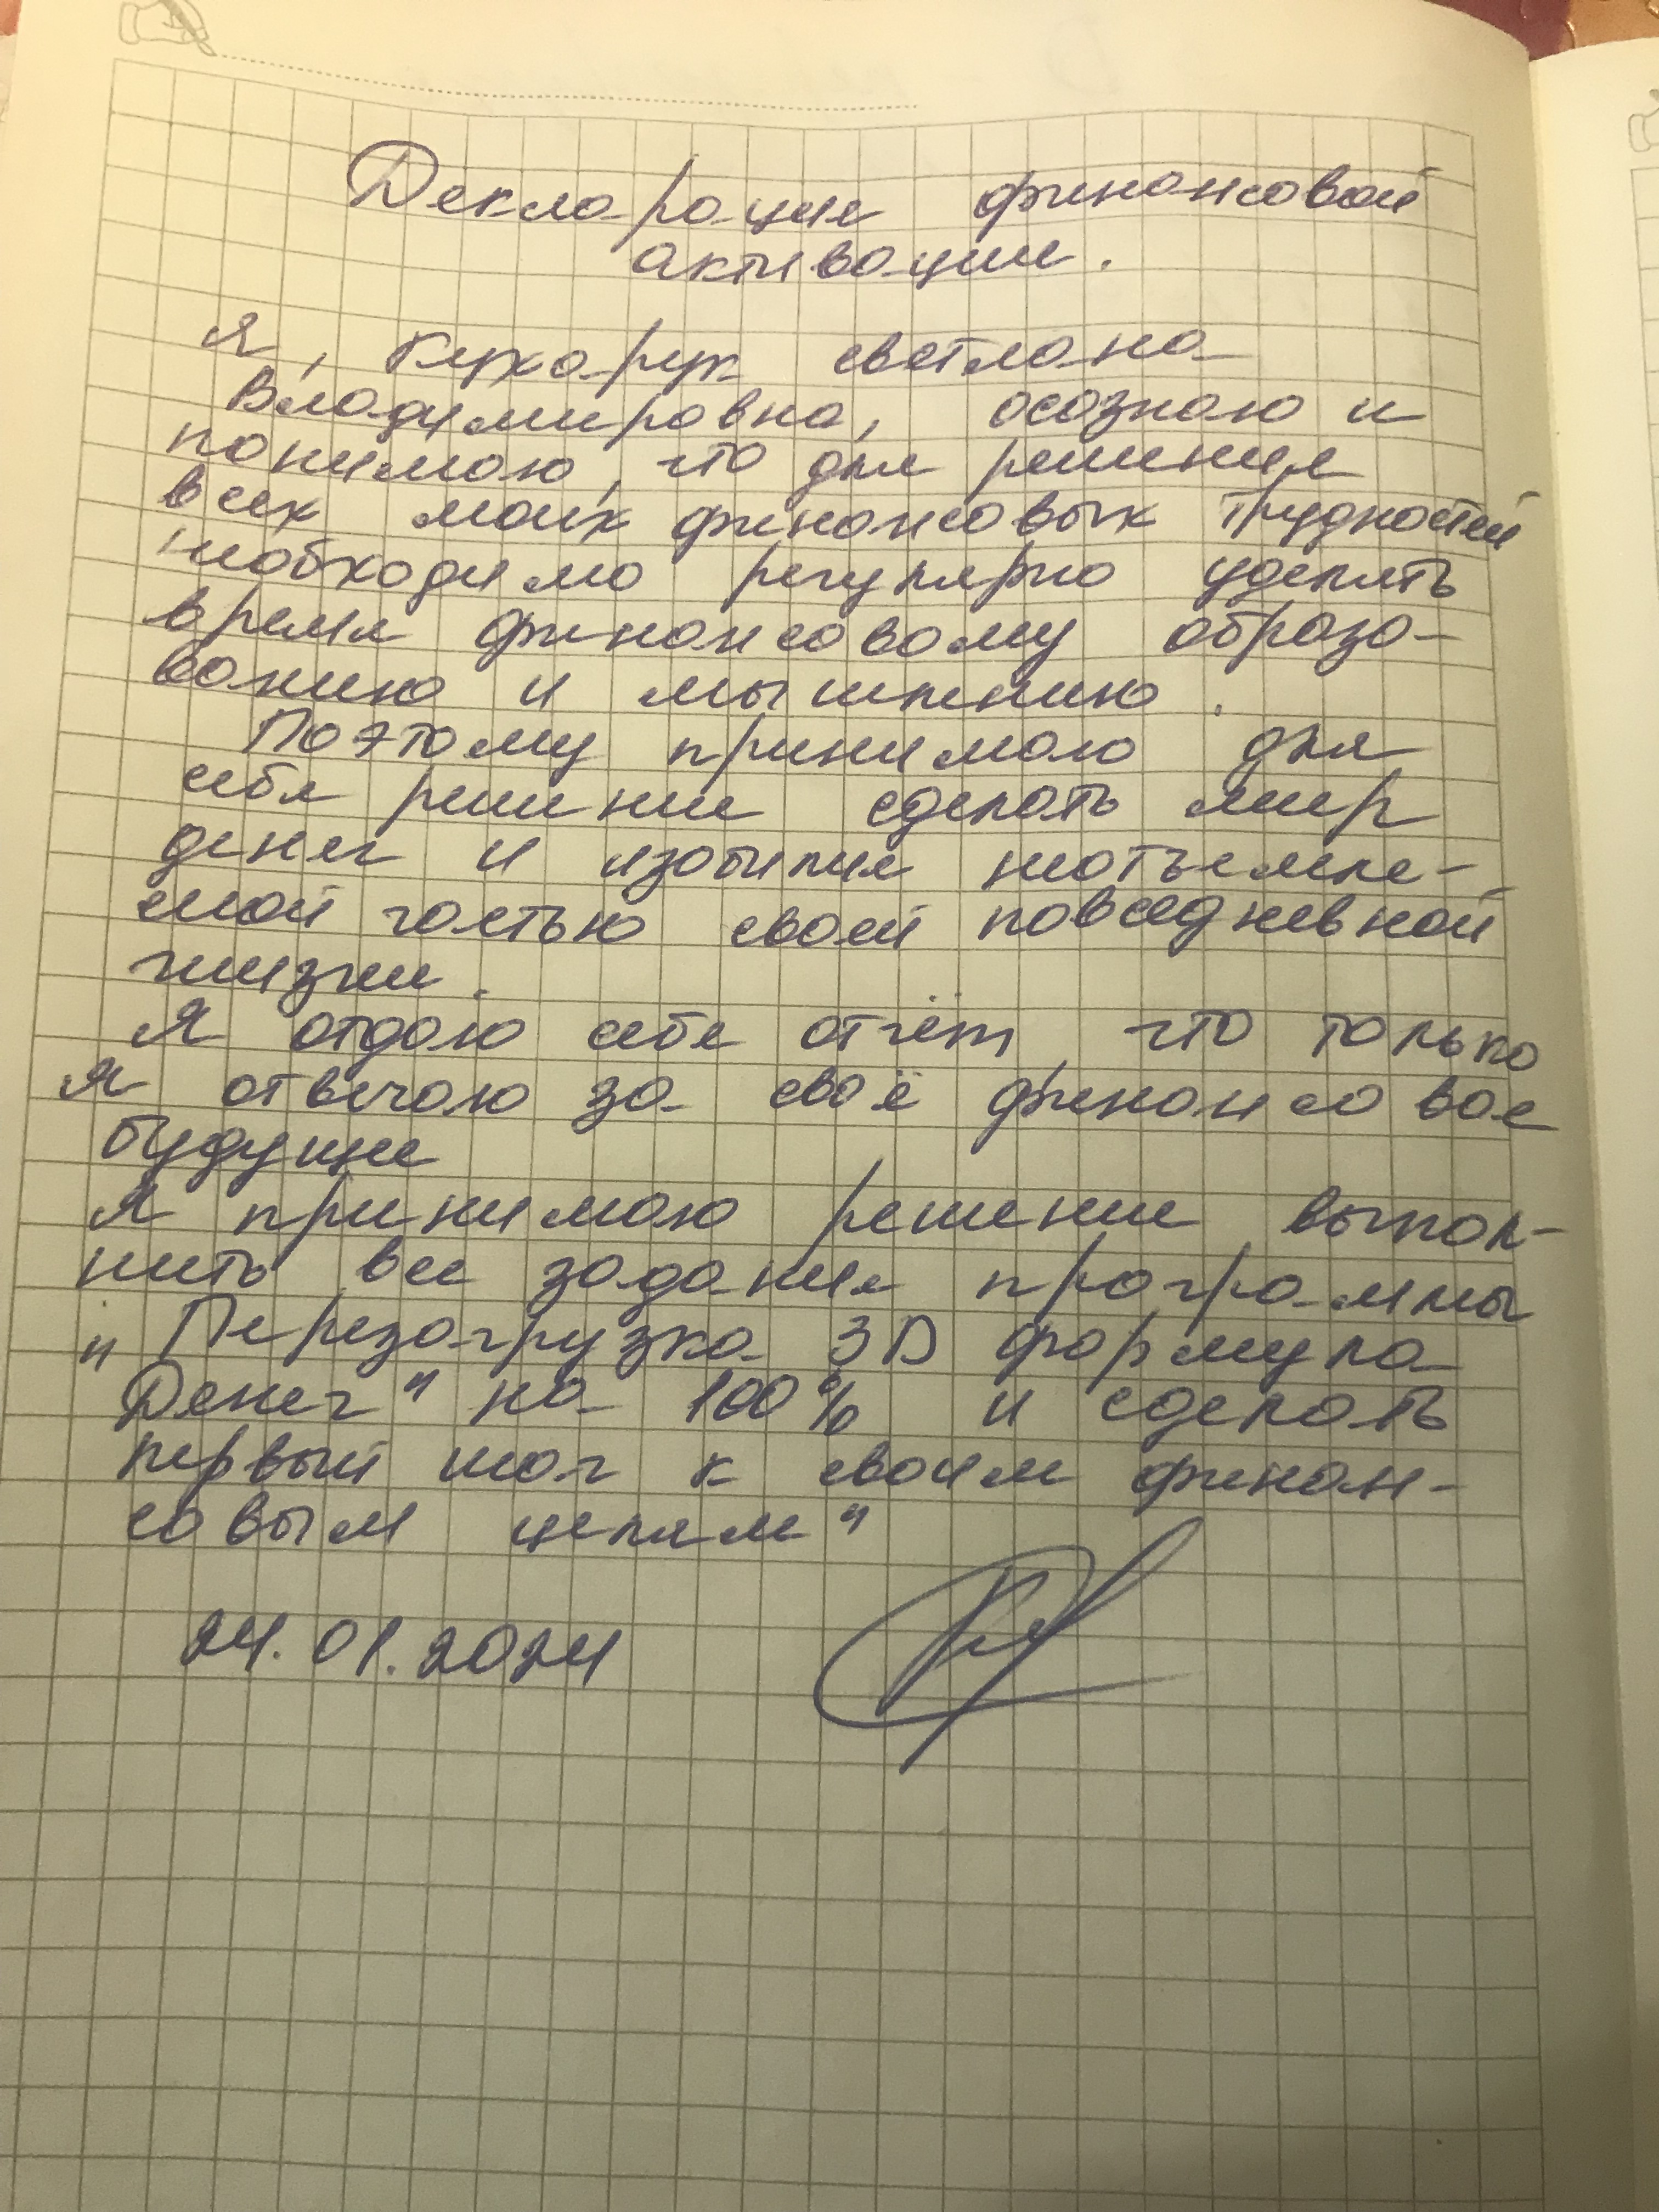 Декларация финансовой
активации.
Я, Кухарук Светлана
Владимировна, осознаю и
понимаю, что для решения
всех моих финансовых трудностей
необходимо регулярно уделять
время финансовому образо-
ванию и мышлению.
Поэтому принимаю для
себя решение сделать мир
денег и изобилия неотъемле-
мой частью своей повседневной
жизни.
Я отдаю себе отчёт, что только
я отвечаю за своё финансовое
будущее
Я принимаю решение выпол-
нить все задания программы
"Перезагрузка 3D формула
Денег" на 100% и сделать
первый шаг к своим финан-
совым целям"
24.01.2024